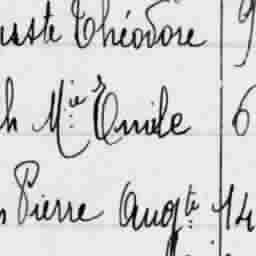 usste Théodore 9
h Mie Emile 6
s Pierre Augte 14